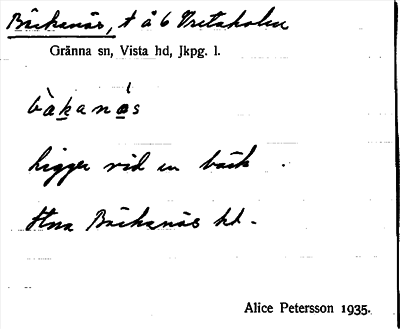 Bäckanäs, t å 6 Vretaholm
Gränna sn, Vista hd, Jkpg. l.
bàkanás
ligger vid en bäck.
Äna Bäckanäs hd.
Alice Petersson 1935.